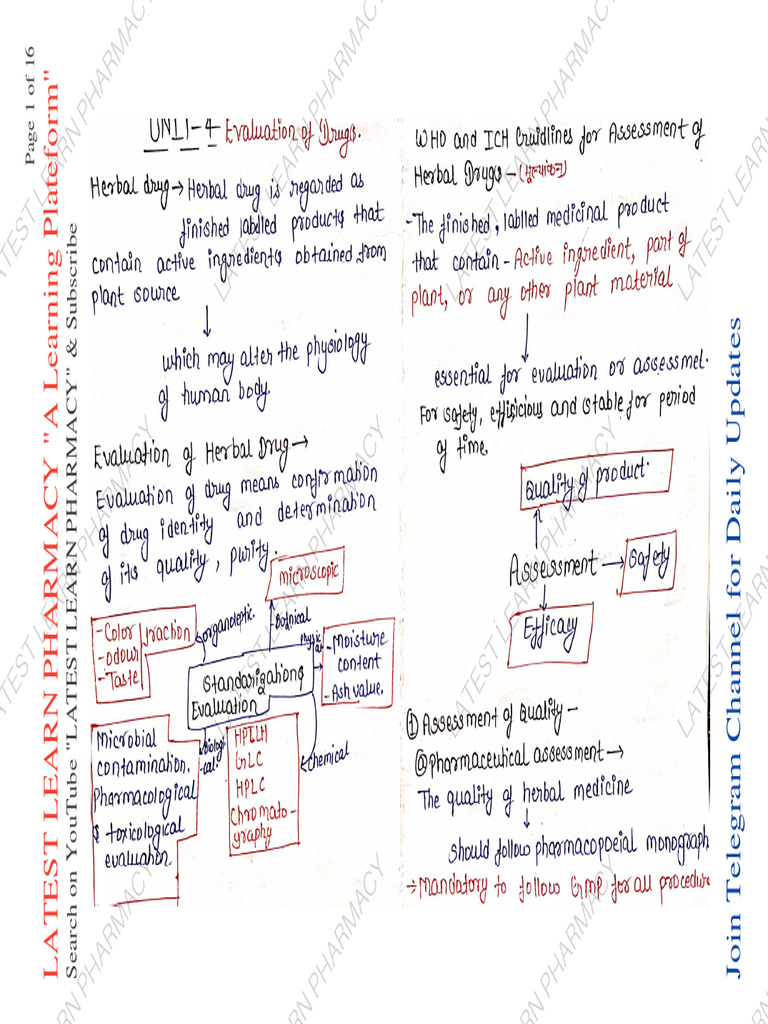 Page 1 of 16
LATEST LEARN PHARMACY "A Learning Plateform"
Search on YouTube "LATEST LEARN PHARMACY" & Subscribe
UNIT-4 Evaluation of Drugs.
Herbal drug → Herbal drug is regarded as
finished labelled products that
contain active ingredients obtained from
plant source
↓
which may alter the physiology
of human body.
Evaluation of Herbal Drug →
Evaluation of drug means confirmation
of drug identity and determination
of its quality, purity.
microscopic
Botnical
organoleptic
-Color
fraction
-odour
-Taste
Physical
-Moisture
content
-Ash value.
Standarizations
Evaluation
Biological
Microbial
contamination.
Pharmacological
& toxicological
evaluation
HPTLH
GLC
HPLC
Chromato-
graphy
Chemical
WHO and ICH Gruidlines for Assessment of
Herbal Drugs - (मूल्यांकन)
-The finished, lablled medicinal product
that contain - Active ingredient, part of
plant, or any other plant material
↓
essential for evaluation or assessmet.
For safety, effisicious and stable for period
of time.
Quality of product.
↑
Assessment → Safety
↓
Efficacy
① Assessment of Quality -
ⓐ pharmaceutical assessment →
The quality of herbal medicine
↓
should follow pharmacopoeial monograph
→ Mandatory to follow GMP for all procedure
Join Telegram Channel for Daily Updates
LATEST LEARN PHARMACY